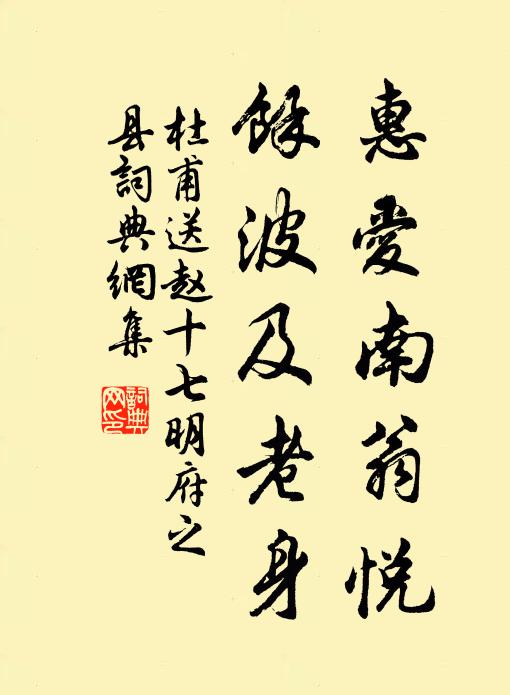 惠愛南翁悅
餘波及老身
杜甫送赵十七明府之
县詞典網集
詞典
网印